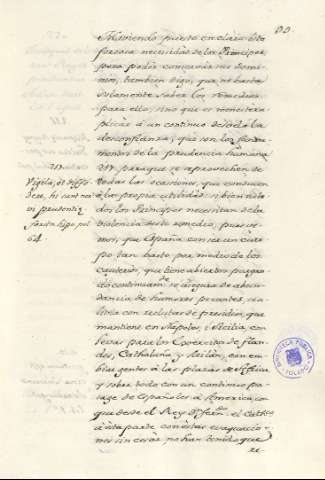 99
Haviendo puesto en claro esta
forzosa necesidad de los Principes,
para poder conservar sus domi-
nios, tambien digo, que no basta
solamente saber los remedios
para ello, sino que es menester a
plicar á un continuo desvelo la
desconfianza, que son los funda-
mentos de la prudencia humana
para que se aprovechen de
todas las ocasiones, que conducen
a la propia utilidad: si bien no to
dos los Principes necesitan de la
violencia de este remedio, pues ve-
mos, que España con ser un cuer
po tan basto por medio de los
cauterios, que tiene abiertos purgan
do continuam.te se asegura de abun
dancia de humores pecantes: ya
libra con reclutas de presidios, que
mantiene en Napoles, i Sicilia, con
levas para los Exercitos de Flan
des, Cathaluña y Milán, con em
biar gentes á las plazas de Africa,
y sobre todo con un continuo pa
sage de Españoles a America con
que desde el Rey D.n Fern.do el Catholico
á esta parte con estas evacuacio-
nes sin cesar no han tenido que
re-
Vigila, et diffi
dere, hi sunt ner
vi prudentiæ
64
BIBLIOTECA PUBLICA
TOLEDO